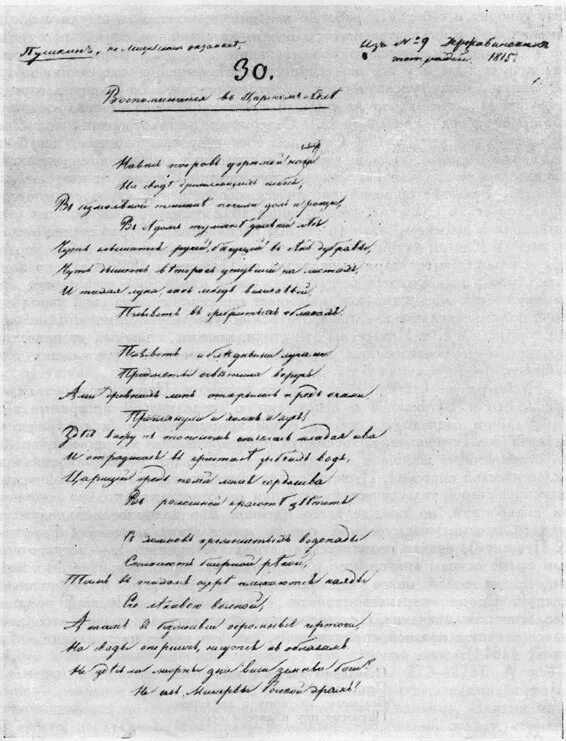 Пушкинъ, не Лицейскій оканчает.
Изъ №9 Державинскихъ
тетрадей. 1815.
30.
Воспоминанія въ Царскомъ-Селѣ
Нависъ покровъ угрюмой нощи
На сводѣ дремлющихъ небесъ,
Въ безмолвной тишинѣ почили долъ и рощи,
Въ сѣдомъ туманѣ дальній лѣсъ
Чуть слышится ручей, бѣгущій въ сѣнь дубравы,
Чуть дышетъ вѣтерокъ уснувшій на листахъ
И тихая луна, какъ лебедь величавый,
Плыветъ въ сребристыхъ облакахъ.
Плыветъ и блѣдными лучами
Предметы освѣтила вдругъ
Аллеи древнихъ липъ открылись предъ очами
Проглянули и холмъ и лугъ;
Здѣсь вижу съ тополомъ сплелась младая ива
И отразилася въ кристалѣ зыбкихъ водъ;
Царицей средь полей лилея горделива
Въ роскошной красотѣ цвѣтетъ
Съ холмовъ кремнистыхъ водопады
Стекаютъ бисерной рѣкой,
Тамъ въ тихомъ озерѣ плескаются наяды
Его лѣнивою волной,
А тамъ въ безмолвіи огромные чертоги
На своды опершись, несутся къ облакамъ
Не здѣсь ли мирны дни вели земные боги?
Не се ль Минервы Росской храмъ?